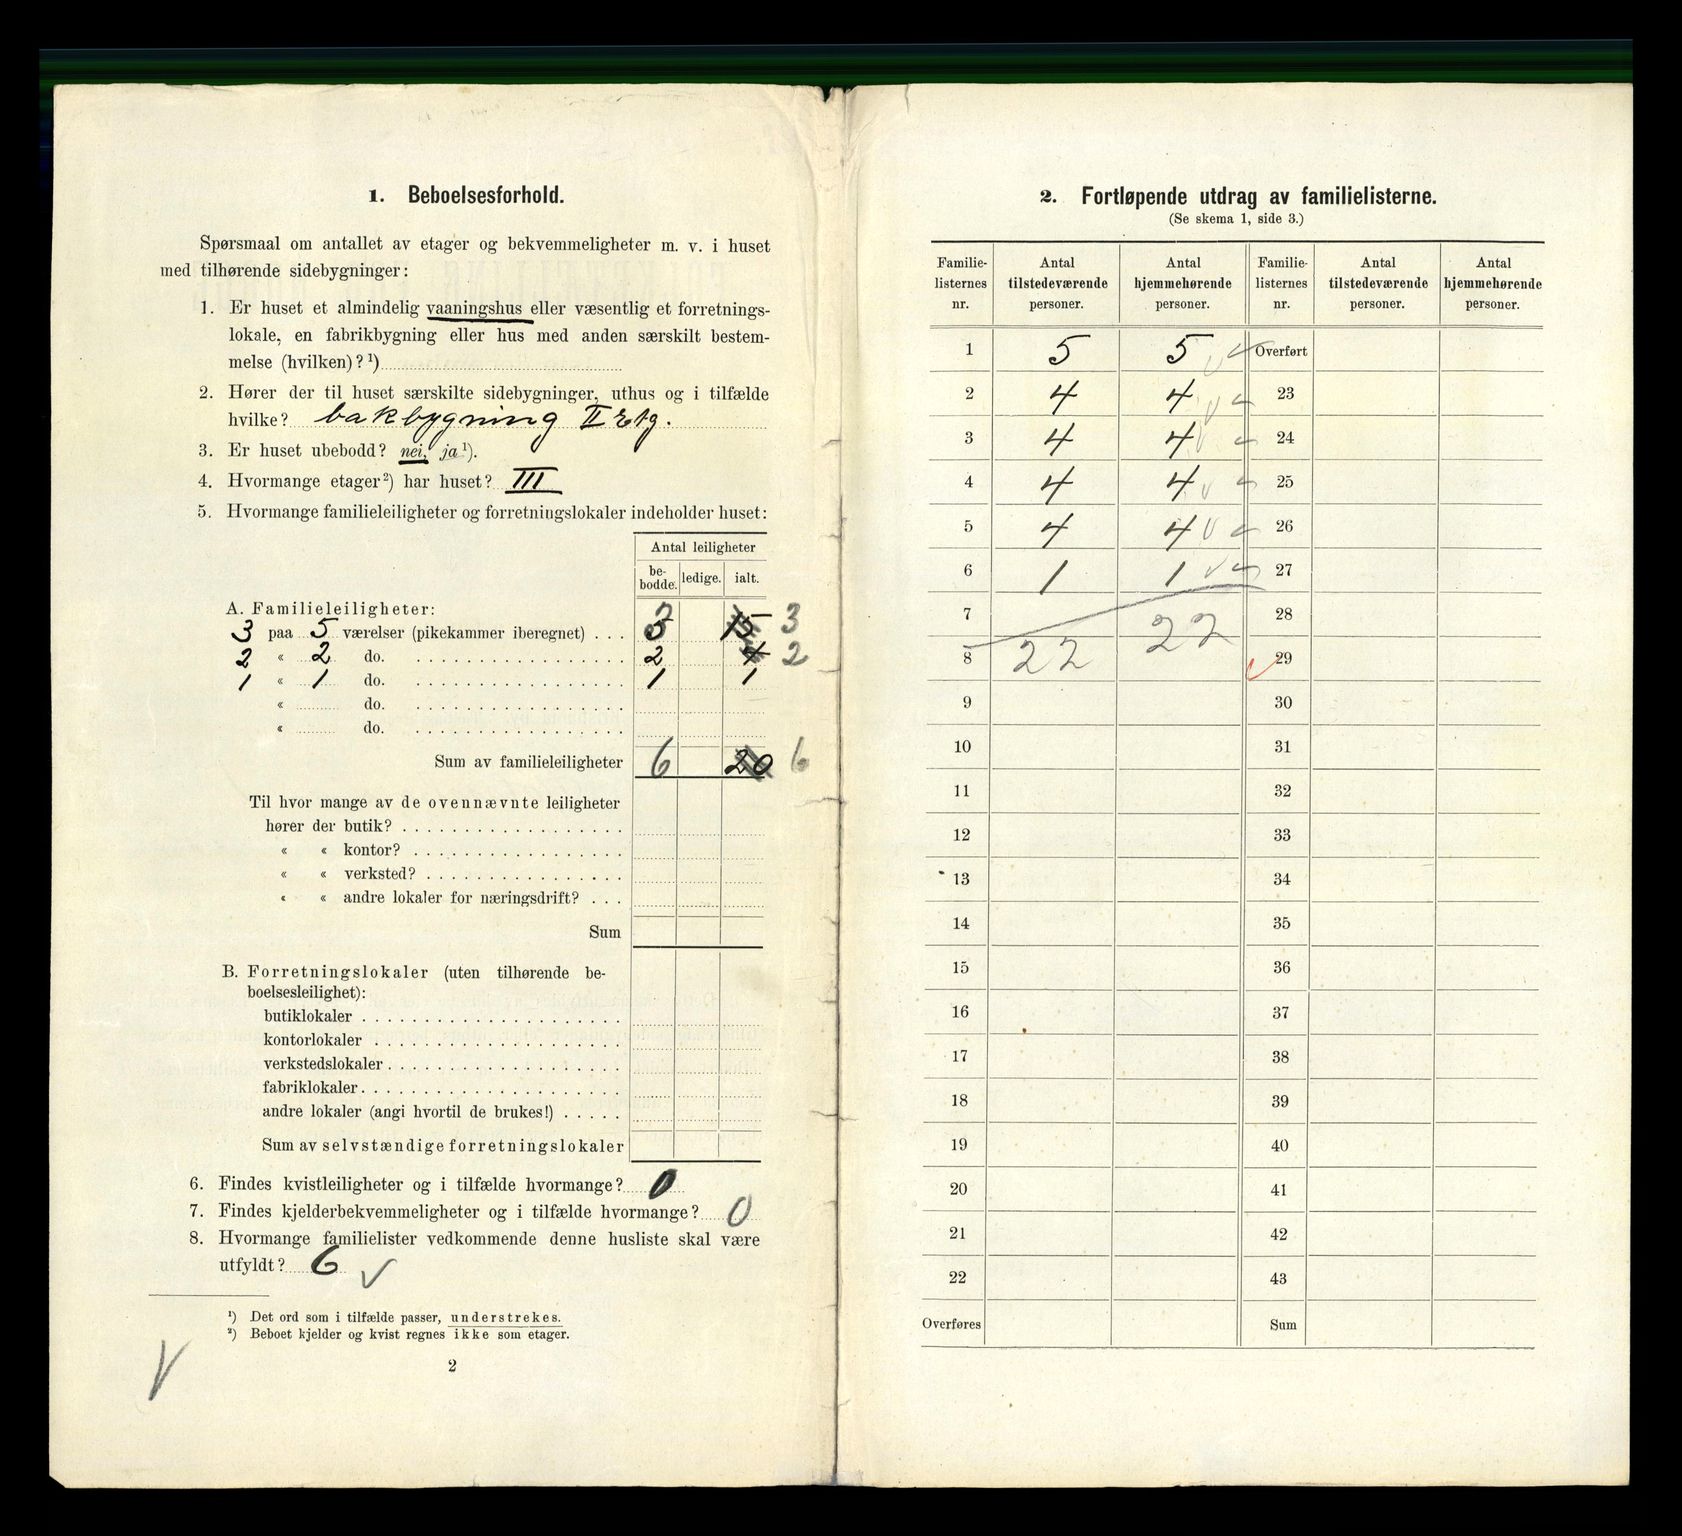 1. Beboelsesforhold.
Spørsmaal om antallet av etager og bekvemmeligheter m. v. i huset
med tilhørende sidebygninger:
1. Er huset et almindelig vaaningshus eller væsentlig et forretnings-
lokale, en fabrikbygning eller hus med anden særskilt bestem-
melse (hvilken)? ¹)
2. Hører der til huset særskilte sidebygninger, uthus og i tilfælde
hvilke? bakbygning II Etg.
3. Er huset ubebodd? nei, ja ¹).
4. Hvormange etager ²) har huset? III
5. Hvormange familieleiligheter og forretningslokaler indeholder huset:
Antal leiligheter
be-
bodde. ledige. ialt.
A. Familieleiligheter:
3 paa 5 værelser (pikekammer iberegnet) . . . 3 15 3
2 « 2 do. . . . . . . . . . . . . . . . . . 2 4 2
1 « 1 do. . . . . . . . . . . . . . . . . . 1 1
« do. . . . . . . . . . . . . . . . . .
« do. . . . . . . . . . . . . . . . . .
Sum av familieleiligheter 6 20 6
Til hvor mange av de ovennævnte leiligheter
hører der butik? . . . . . . . . . . . . . . . . . .
« « kontor? . . . . . . . . . . . . . . . . .
« « verksted? . . . . . . . . . . . . . . . .
« « andre lokaler for næringsdrift? . . .
Sum
B. Forretningslokaler (uten tilhørende be-
boelsesleilighet):
butiklokaler . . . . . . . . . . . . . . . . . . . . .
kontorlokaler . . . . . . . . . . . . . . . . . . . .
verkstedslokaler . . . . . . . . . . . . . . . . . . .
fabriklokaler . . . . . . . . . . . . . . . . . . . . .
andre lokaler (angi hvortil de brukes!) . . . . .
Sum av selvstændige forretningslokaler
6. Findes kvistleiligheter og i tilfælde hvormange? 0
7. Findes kjelderbekvemmeligheter og i tilfælde hvormange? 0
8. Hvormange familielister vedkommende denne husliste skal være
utfyldt? 6 ✓
¹) Det ord som i tilfælde passer, understrekes.
²) Beboet kjelder og kvist regnes ikke som etager.
2
2. Fortløpende utdrag av familielisterne.
(Se skema 1, side 3.)
Familie- Antal Antal Familie- Antal Antal
listernes tilstedeværende hjemmehørende listernes tilstedeværende hjemmehørende
nr. personer. personer. nr. personer. personer.
1 5 5 Overført
2 4 4 23
3 4 4 24
4 4 4 25
5 4 4 26
6 1 1 27
7 22 28
8 22 29
9 30
10 31
11 32
12 33
13 34
14 35
15 36
16 37
17 38
18 39
19 40
20 41
21 42
22 43
Overføres Sum